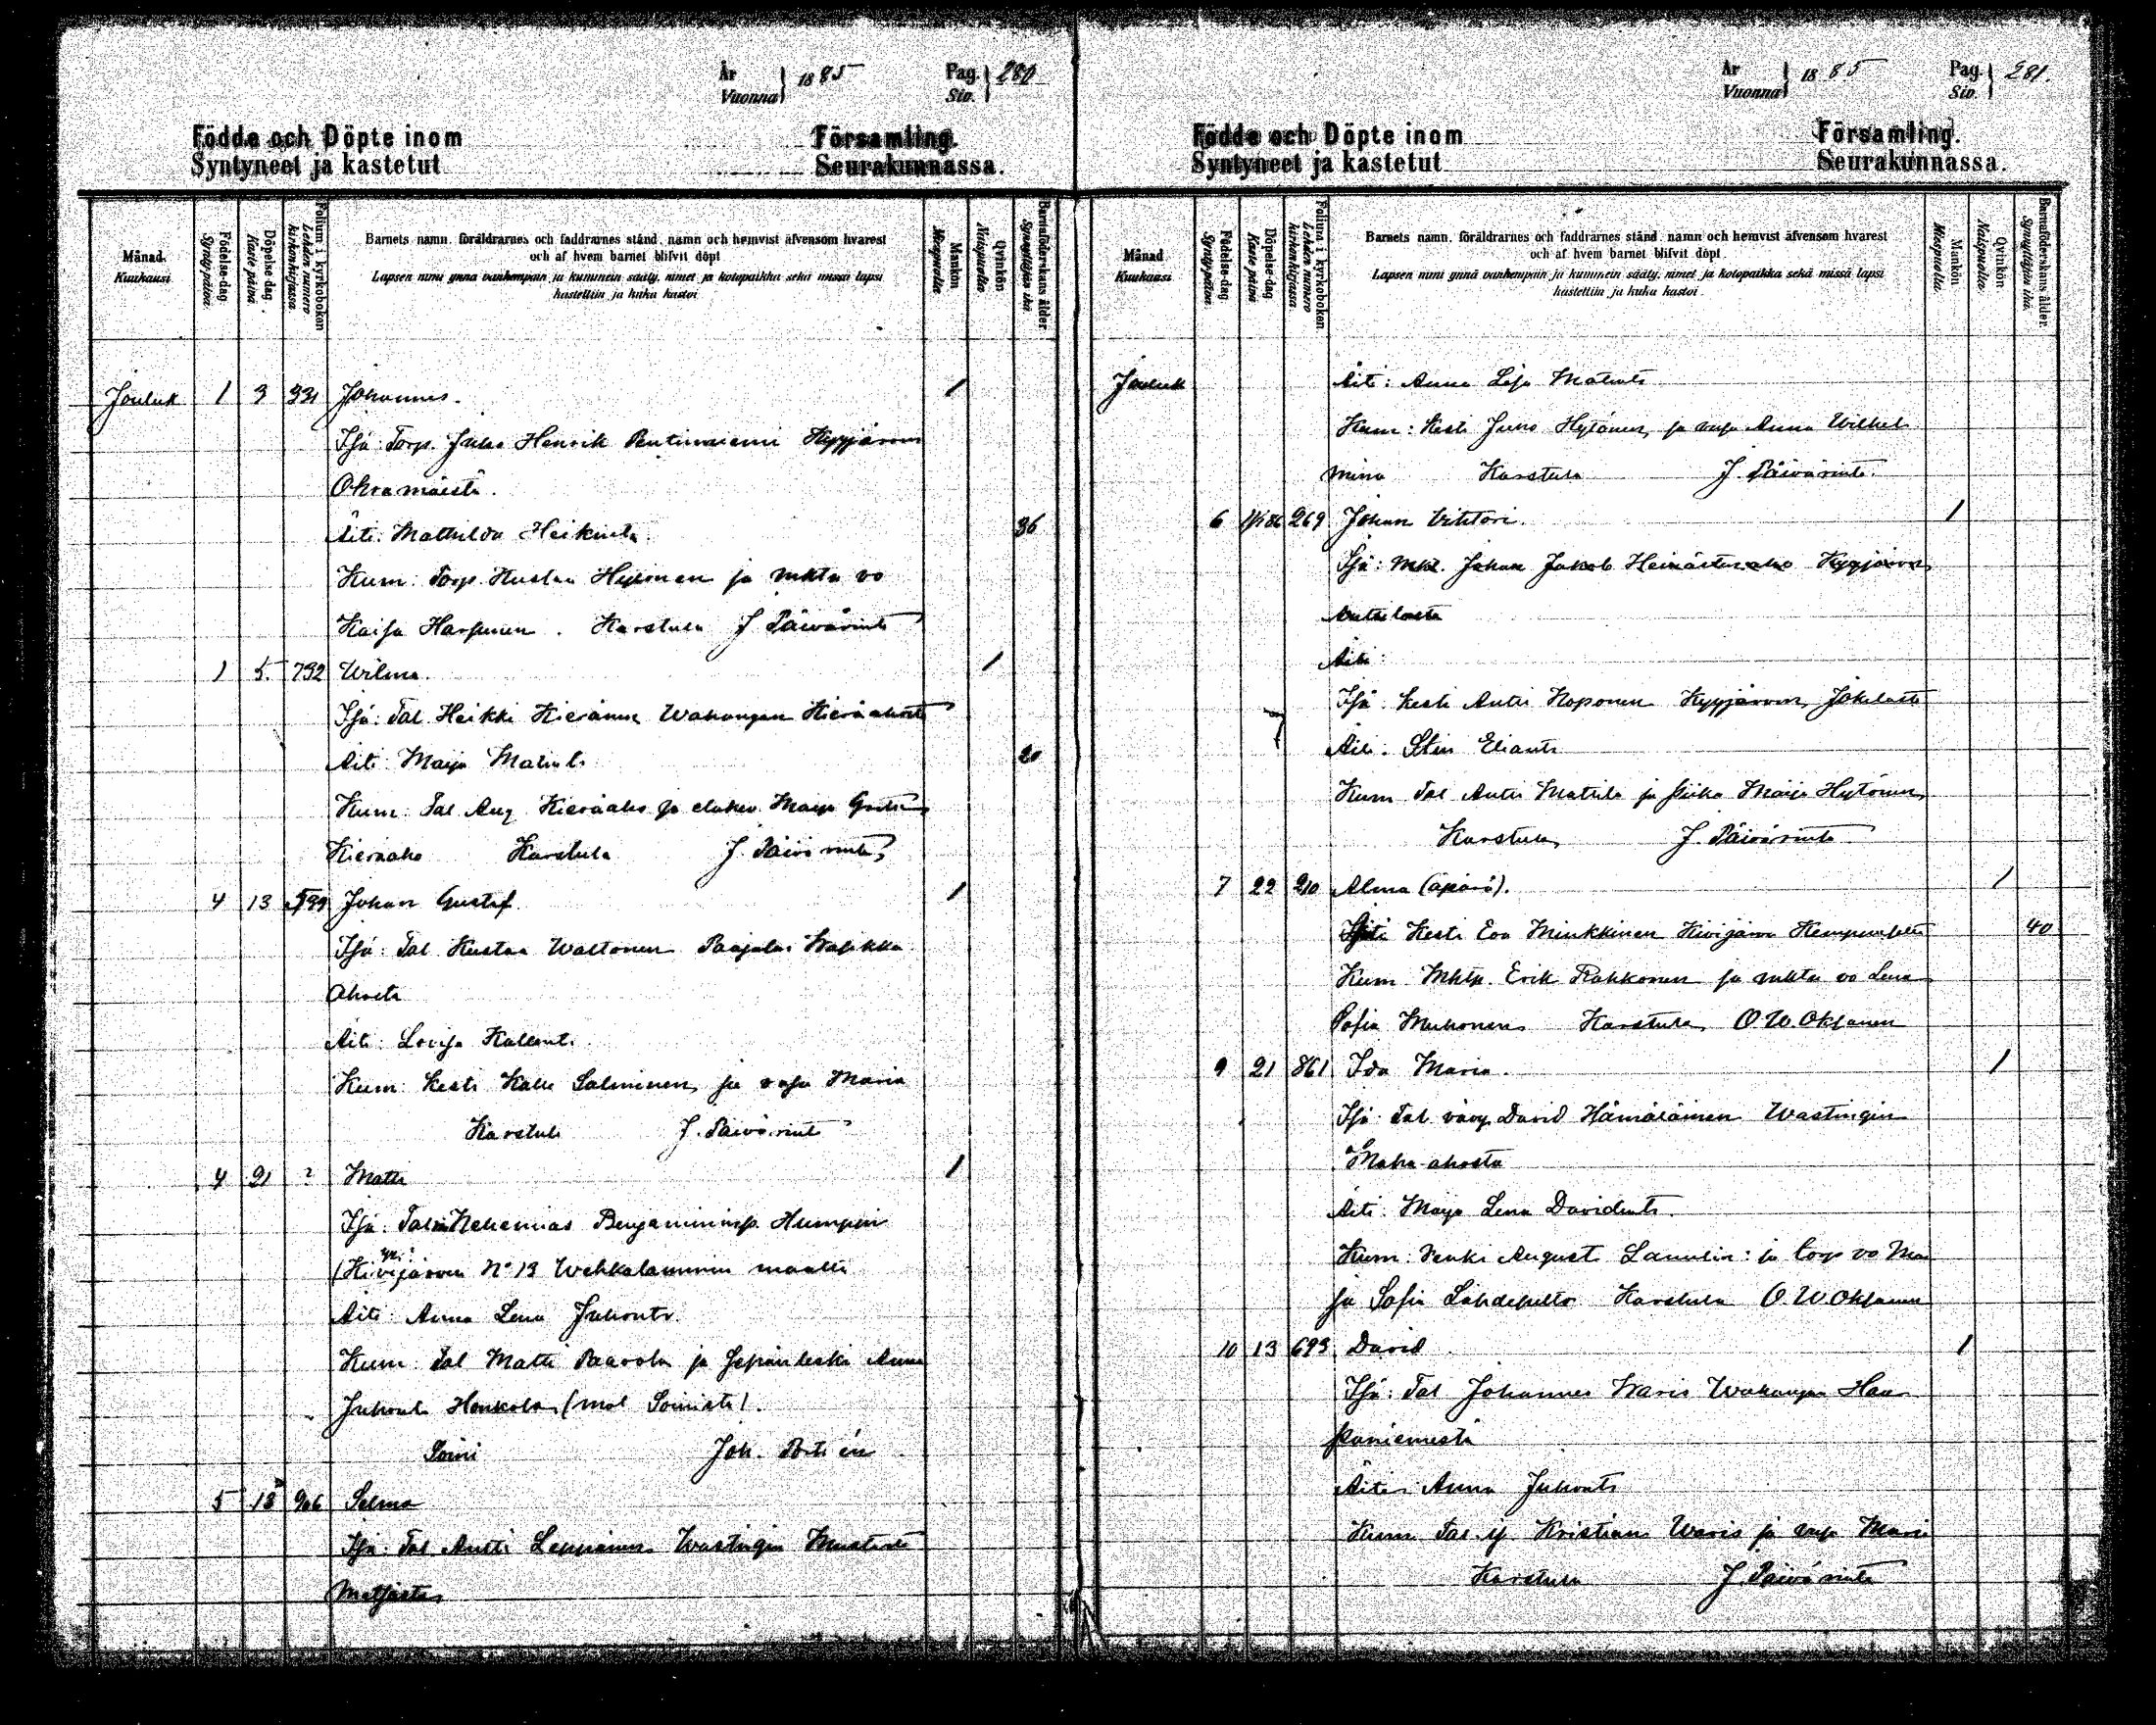 År
Vuonna } 1885 Pag.
Siv. } 280
Födde och Döpte inom Församling.
Syntyneet ja kastetut Seurakunnassa.
Månad.
Kuukausi
Födelse-dag.
Synty-päivä.
Döpelse-dag.
Kaste päivä
Folium i kyrkoboken
Lehden numero kirkonkirjassa
Barnets namn, föräldrarnes och faddrarnes stånd, namn och hemvist äfvensom hvarest
och af hvem barnet blifvit döpt
Lapsen nimi ynnä vanhempain ja kummein sääty, nimet ja kotopaikka sekä missä lapsi
kastettiin ja kuka kastoi
Mankön
Miespuolia
Qvinkön
Naispuolia
Barnaföderskans ålder.
Synnyttäjän ikä
Jouluk 1 3 331 Johannes. 1
Isä: Torp. Juha Henrik Pentinniemi Kyyjärven
Ohramäistä.
Äiti: Mathilda Heikint. 36
Kum: Torp. Kustaa Hyytinen ja mktu vo
Kaisa Harjunen. Karstula J Päivärinta
1 5. 732 Wilma. 1
Isä: Tal. Heikki Kieränen Wahangan Kieräahosta
Äiti: Maija Matint. 20
Kum: Tal Aug Kieräaho ja Maija
Kieräaho Karstula J. Päivärinta
4 13 Johan Gustaf 1
Isä: Tal Kustaa Waltonen Paajalan
Ahosta
Äiti: Lovisa Kallent.
Kum: Kesti Kalle Salminen ja vaja Maria
Karstula J. Päivärinta
4 21 ? Matti 1
Isä: Nehemias Benjamininp. Humpin
(Kivijärven No 13 Wehkalammin maalta
Äiti: Anna Lena Juhont.
Kum: Tal Matti Paavola ja Sepän leski Anna
Juhont. Honkola (mol Soinista).
Soini Joh.
5 18 906 Selma
Isä: Tal Antti Leppänen Wastingin

År
Vuonna } 1885 Pag.
Siv. } 281.
Födde och Döpte inom Församling.
Syntyneet ja kastetut Seurakunnassa.
Månad
Kuukausi
Födelse-dag
Synty-päivä.
Döpelse-dag
Kaste päivä
Folium i kyrkoboken
Lehden numero kirkonkirjassa.
Barnets namn, föräldrarnes och faddrarnes stånd, namn och hemvist äfvensom hvarest
och af hvem barnet blifvit döpt.
Lapsen nimi ynnä vanhempain ja kummein sääty, nimet ja kotopaikka sekä missä lapsi
kastettiin ja kuka kastoi.
Mankön
Miespuolia.
Qvinkön
Naispuolia.
Barnaföderskans ålder.
Synnyttäjän ikä.
Jouluk Äiti: Anna Lisa Matint.
Kum: Kesti Juho Hytönen ja vaja Anna Wilhel
mina Karstula J. Päivärinta.
6 269 Johan Vihtori. 1
Isä: Mkt. Johan Jakob Kyyjärven
Äiti:
Isä: Kesti Antti Koponen Kyyjärven Jokelasta
Äiti: Stin Eliant.
Kum Tal Antti Mattila ja piika Maija Hytönen
Karstula J. Päivärinta
7 22 210 Alma (äpärä). 1
Äiti Kesti Eva Minkkinen Kivijärven 40
Kum Mktp. Erik Rahkonen ja mktu vo Lena
Sofia Muhonen Karstula O W. Oksanen
9 21 861 Ida Maria. 1
Isä: Tal. vävy David Hämäläinen Wastingin
Maha-ahosta
Äiti: Maija Lena Davidint.
Kum: Renki August Lamulin: ja torp vo Ma
ja Sofia Lahdepelto Karstula O. W. Oksanen
10 13 693 David 1
Isä: Tal Johannes Waris Wahangan Haa
paniemestä
Äiti: Anna Juhont.
Kum Tal. Kristian Waris ja vaja Maria
Karstula J. Päivärinta